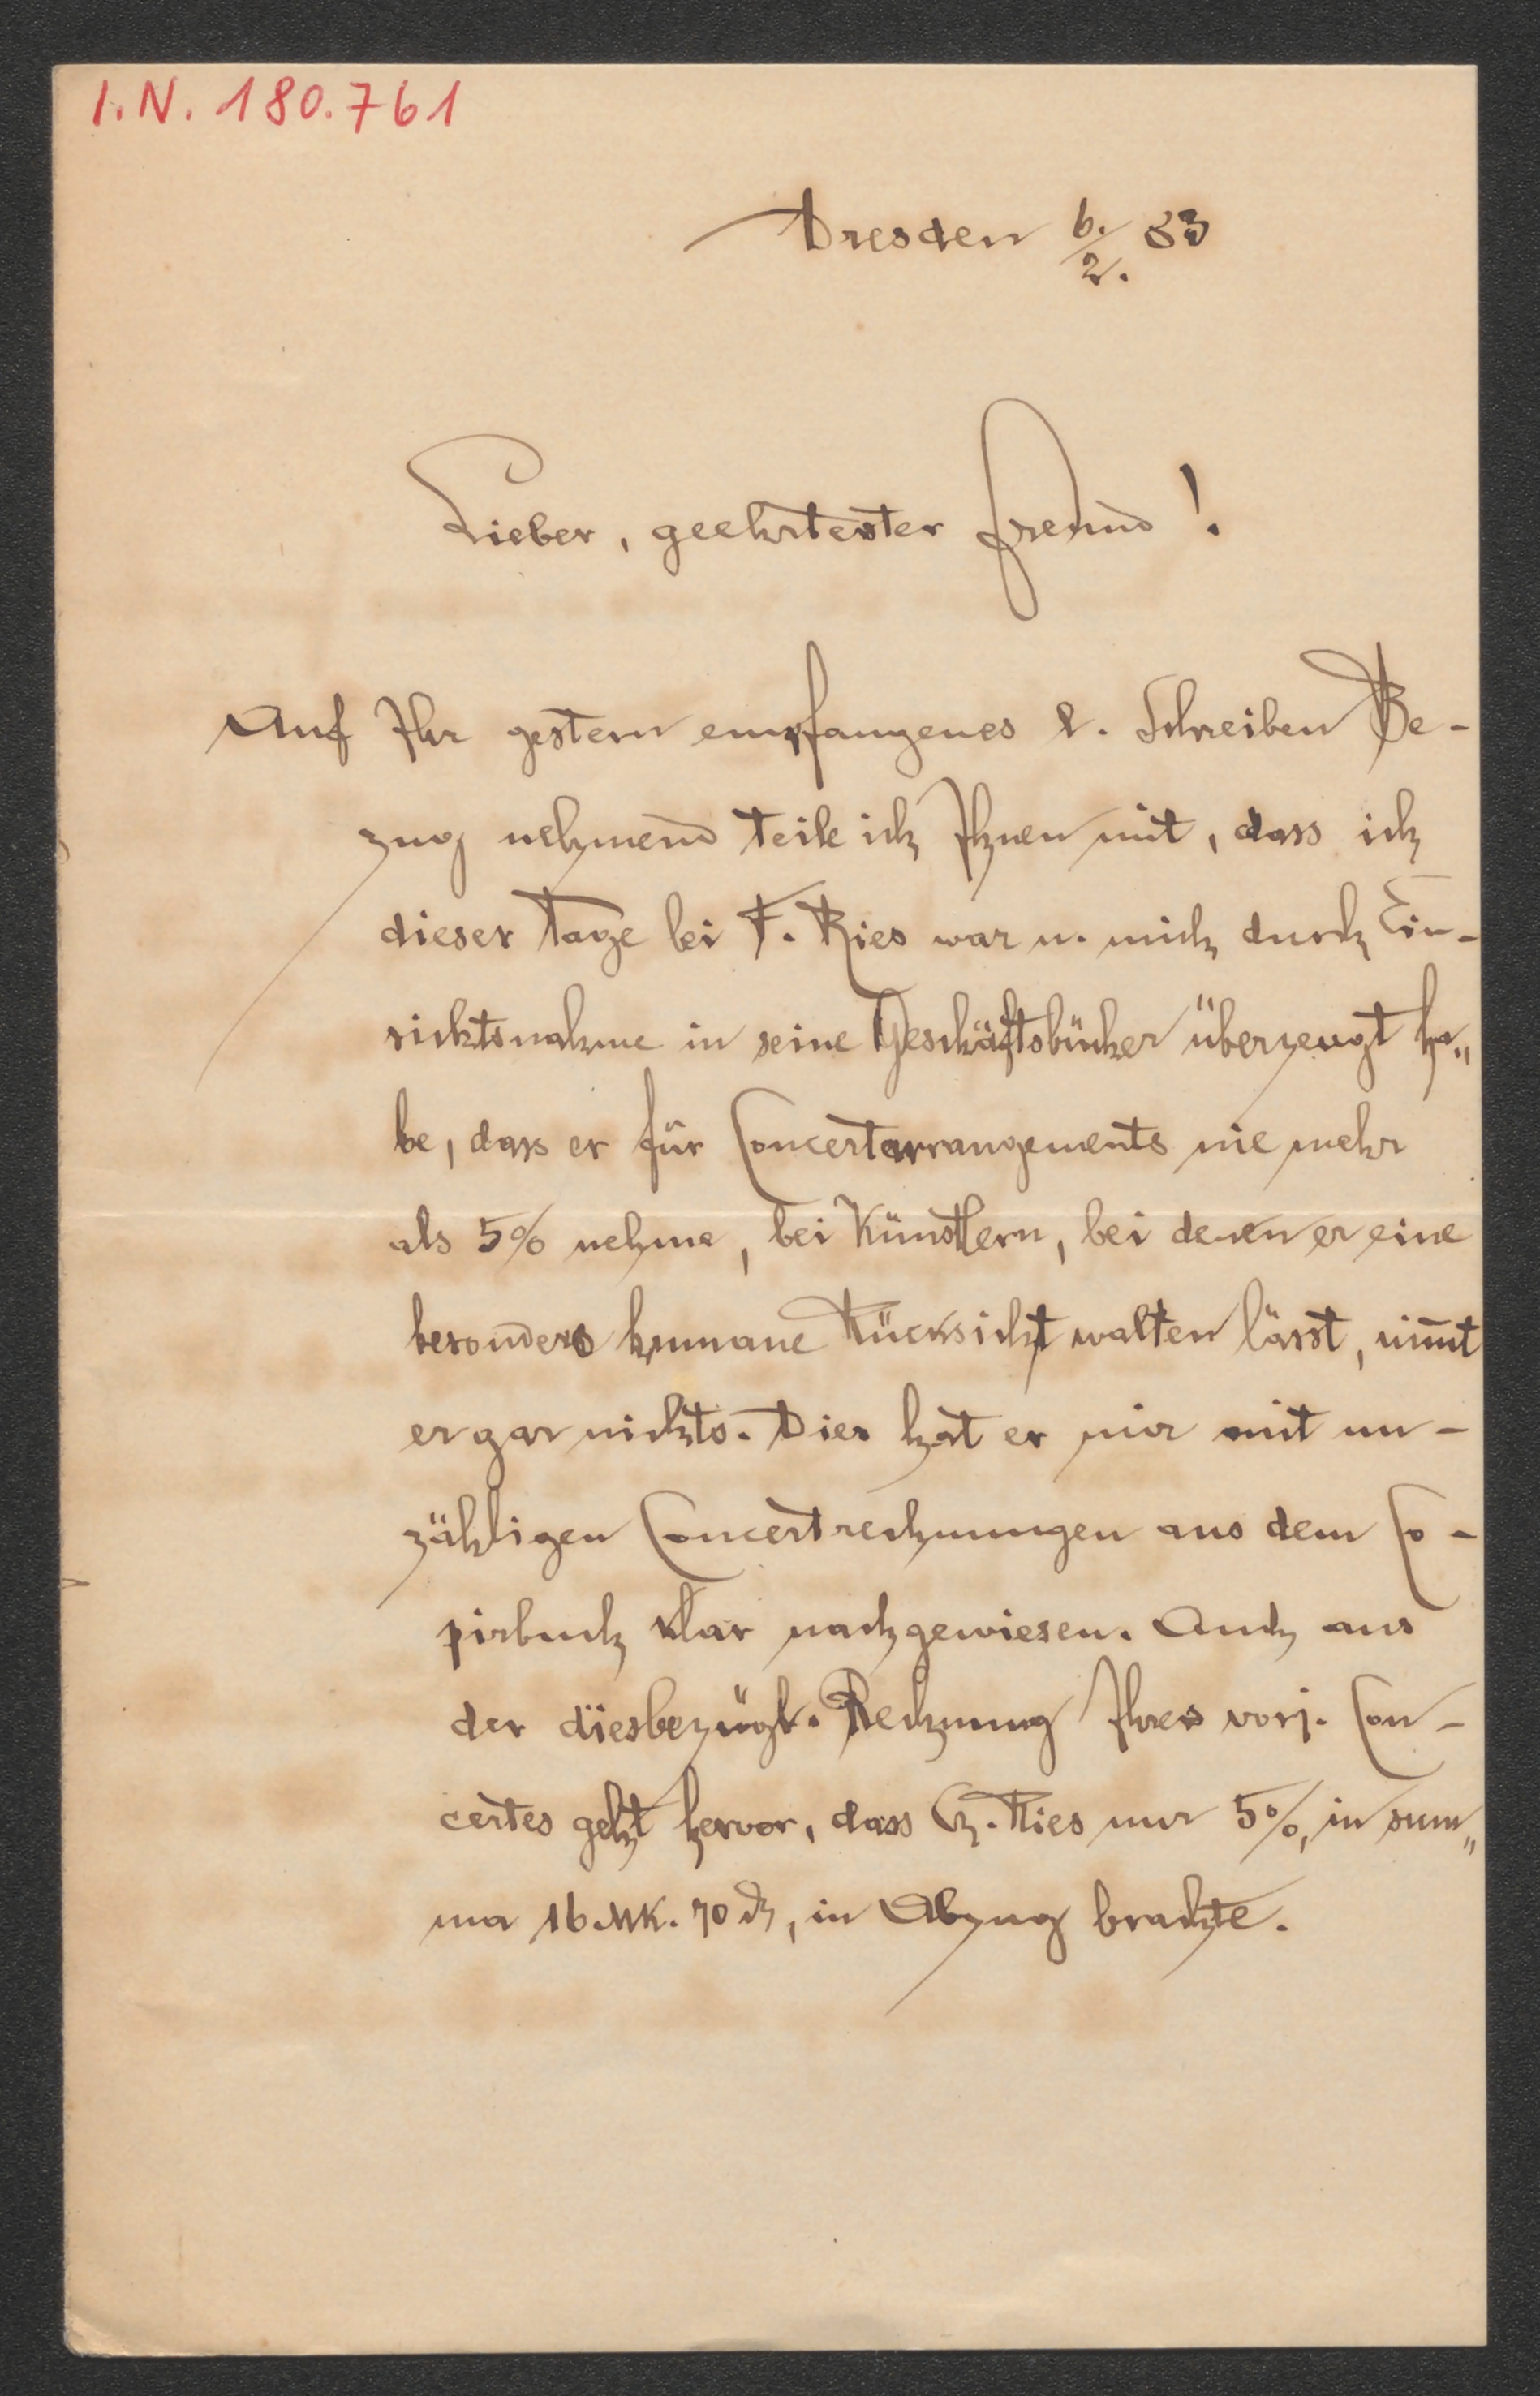 I.N. 180.761
Dresden 6./2. 83
Lieber, geehrtester Freund!
Auf Ihr gestern empfangenes l. Schreiben Be-
zug nehmend teile ich Ihnen mit, dass ich
dieser Tage bei F. Ries war u. mich durch Ein-
sichtsnahme in seine Geschäftsbücher überzeugt ha„
be, dass er für Concertarrangements nie mehr
als 5% nehme, bei Künstlern, bei denen er eine
besonders humane Rücksicht walten lässt, nim̄t
er gar nichts. Dies hat er mir mit un-
zähligen Concertrechnungen aus dem Co-
pirbuch klar nachgewiesen. Auch aus
der diesbezügl. Rechnung Ihres vorj. Con-
certes geht hervor, dass H. Ries nur 5%, in sum„
ma 16 Mk. 70 ₰, in Abzug brachte.